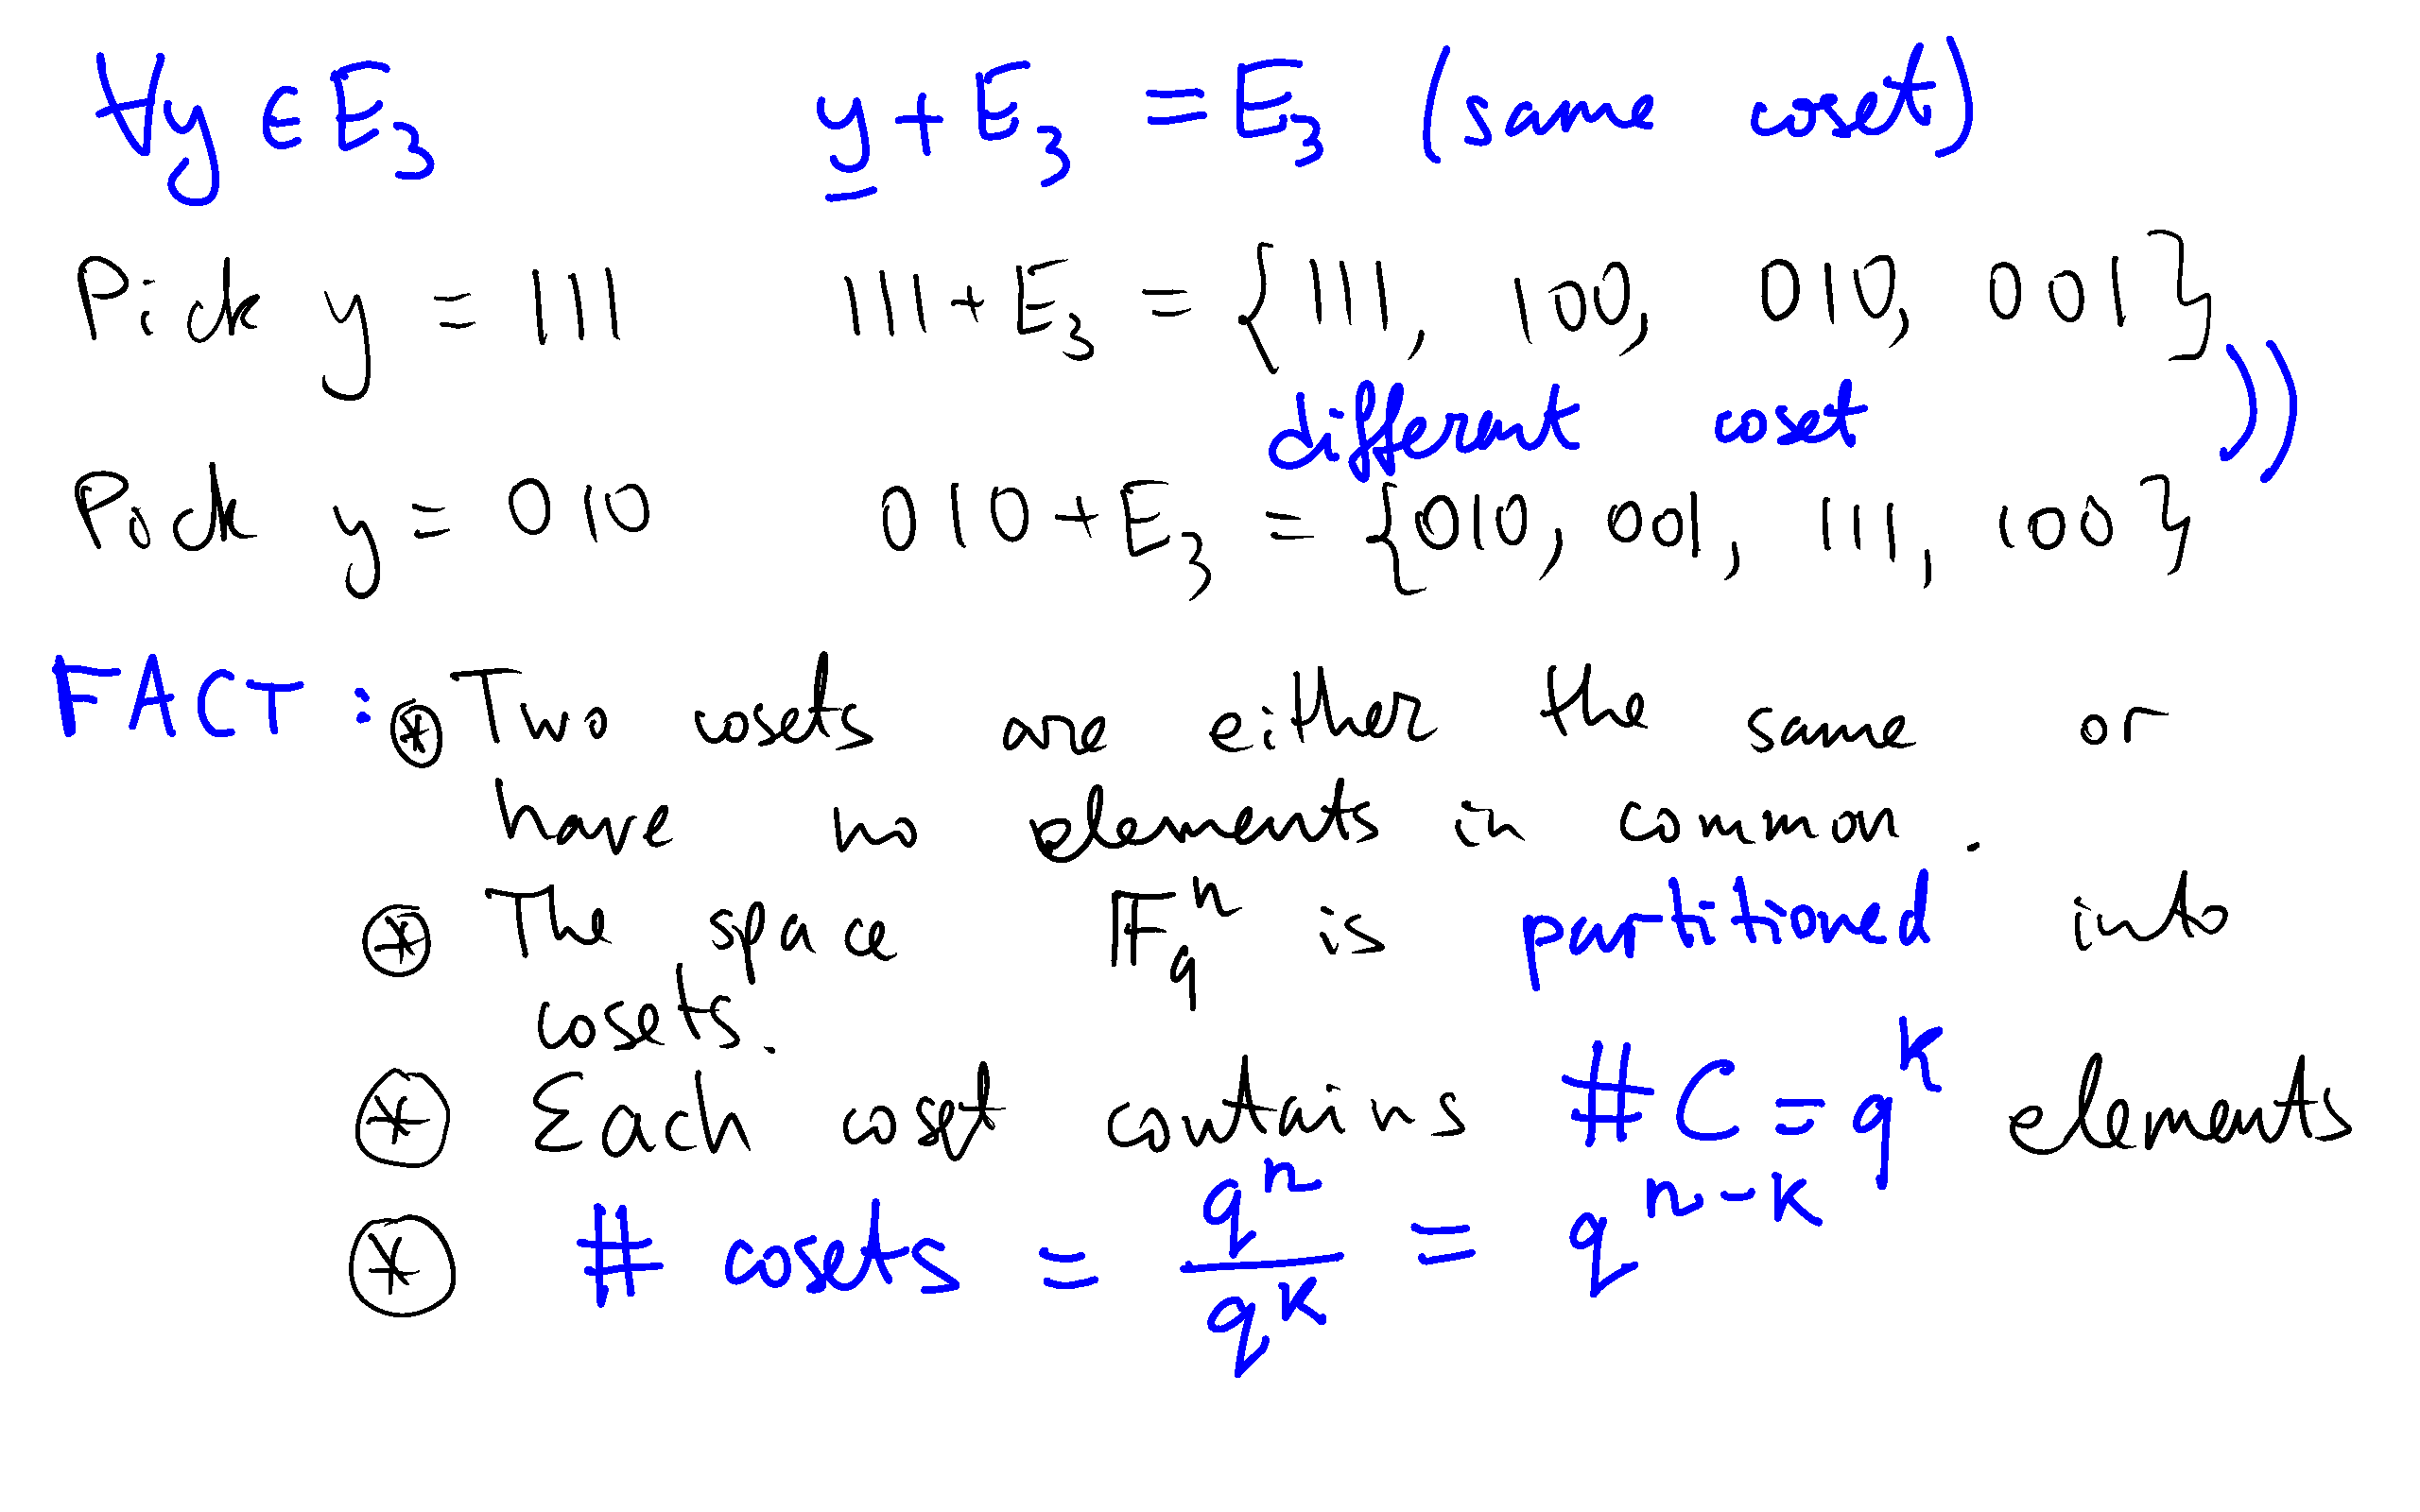 ∀y ∈ E₃ y + E₃ = E₃ (same coset)
Pick y = 111 111 + E₃ = {111, 100, 010, 001}
different coset ))
Pick y = 010 010 + E₃ = {010, 001, 111, 100}
FACT: ⊛ Two cosets are either the same or
have no elements in common.
⊛ The space 𝔽_q^n is partitioned into
cosets.
⊛ Each coset contains #C = q^k elements
⊛ # cosets = q^n / q^k = q^{n-k}